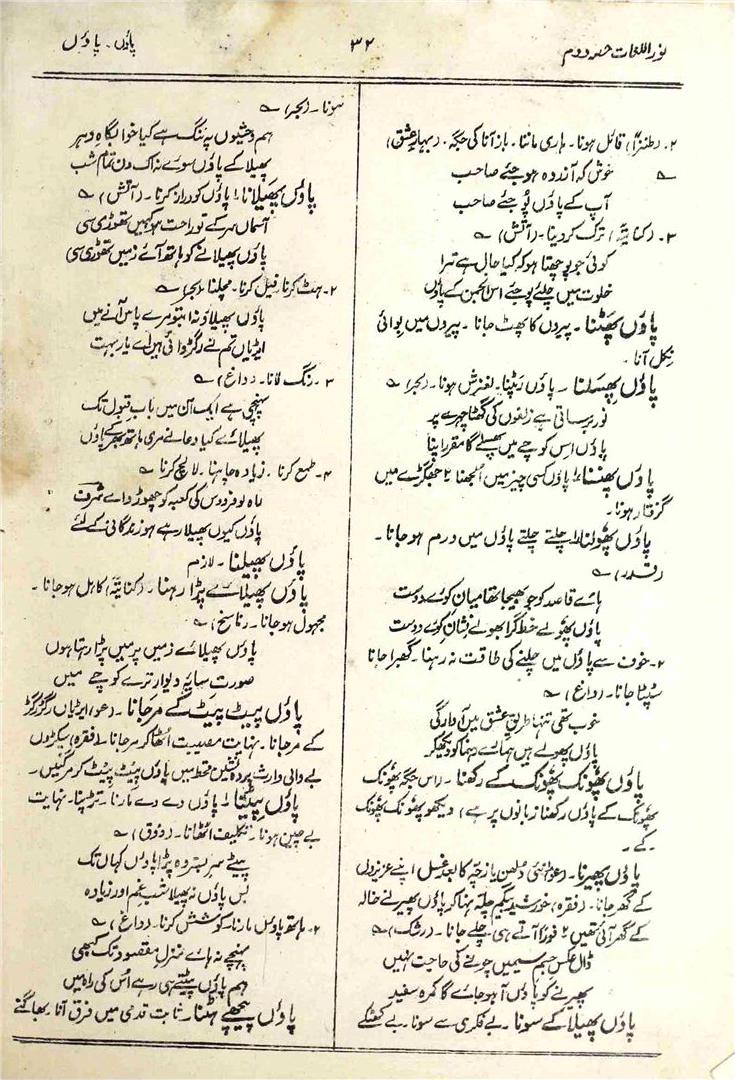 نور اللغات حصہ دوم
۳۲
پاؤں ۔ پاؤں
۲۔ (طنزاً) قائل ہونا۔ ہاری ماننا۔ باز آنا کی جگہ۔ (بہارِ عشق)
؎ خوش کہ آزردہ ہو جئے صاحب
آپ کے پاؤں پُوجئے صاحب
۳۔ (کنایتہً) ترک کر دینا۔ (آتش) ؎
کوئی جو پوچھتا ہو کہ کیا حال ہے ترا
خلوت میں چلئے پوجئے اس انجمن کے پاؤں
پاؤں پھٹنا۔ پیروں کا پھٹ جانا۔ پیروں میں بوائی
نکل آنا۔
پاؤں پھسلنا۔ پاؤں رپٹنا۔ لغزش ہونا۔ (بحر) ؎
نور برساتی ہے زلفوں کی گھٹا چہرے پر
پاؤں اس کوچے میں پھسلے گا مقرر اپنا
پاؤں پھنسنا ۱۔ پاؤں کسی چیز میں اُلجھنا ۲ جھگڑے میں
گرفتار ہونا۔
پاؤں پھولنا ۱۔ چلتے چلتے پاؤں میں ورم ہو جانا۔
(قدر) ؎
ہائے قاصد کو جو بھیجا تھا میانِ کوئے دوست
پاؤں پھولے خط گرا بھولے نشانِ کوئے دوست
۲۔ خوف سے پاؤں میں چلنے کی طاقت نہ رہنا۔ گھبرا جانا
سٹپٹا جانا۔ (داغ) ؎
خوب تھی تنہا طریقِ عشق میں آوارگی
پاؤں پھولے ہیں ہمارے رہنما کو دیکھ کر
پاؤں پھونک پھونک کے رکھنا۔ (اس جگہ پھونک
پھونک کے پاؤں رکھنا زبانوں پر ہے) دیکھو پھونک پھونک
کے۔
پاؤں پھیرنا۔ (عو) دلھن یا زچہ کا بعد غسل اپنے عزیزوں
کے گھر جانا۔ (فقرہ) خورشید بیگم چلہ نہا کر پاؤں پھیرنے خالہ
کے گھر آئی تھیں ۲ فوراً آتے ہی چلے جانا۔ (رشک) ؎
ڈال عکسِ جسمِ سیمیں چونے کی حاجت نہیں
پھیرنے کو پاؤں آ ہو جائے گا کمرہ سفید
پاؤں پھیلا کے سونا۔ بے فکری سے سونا۔ بے کھٹکے
سونا۔ (بحر) ؎
ہم وحشیوں پہ تنگ ہے کیا خوابگاہِ دہر
پھیلا کے پاؤں سوئے نہ اک دن تمام شب
پاؤں پھیلانا ۱۔ پاؤں کو دراز کرنا۔ (آتش) ؎
آسماں مر کے تو راحت ہو کہیں تھوڑی سی
پاؤں پھیلانے کو ہاتھ آئے زمیں تھوڑی سی
۲۔ ہٹ کرنا۔ فیل کرنا۔ مچلنا (بحر) ؎
پاؤں پھیلاؤ نہ اب تو مرے پاس آنے میں
ایڑیاں تم نے رگڑوائی ہیں اے یار بہت
۳۔ رنگ لانا۔ (داغ) ؎
پہنچی ہے ایک آن میں بابِ قبول تک
پھیلائے کیا دعا نے مری ہاتھ بھر کے پاؤں
۴۔ طمع کرنا۔ زیادہ چاہنا۔ لالچ کرنا ؎
راہ لو فردوس کی کعبہ کو چھوڑو اے شرف
پاؤں کیوں پھیلا رہے ہو زندگانی کے لئے
پاؤں پھیلنا۔ لازم
پاؤں پھیلائے پڑا رہنا۔ (کنایتہً) کاہل ہو جانا۔
مجہول ہو جانا۔ (ناسخ) ؎
پاؤں پھیلائے زمیں پر میں پڑا رہتا ہوں
صورتِ سایہ دیوار ترے کوچے میں
پاؤں پیٹ پیٹ کے مر جانا۔ (عو) ایڑیاں رگڑ رگڑ
کے مر جانا۔ نہایت مصیبت اُٹھا کر مر جانا۔ (فقرہ) سیکڑوں
بے والی وارث پردہ نشین قحط میں پاؤں پیٹ پیٹ کر مر گئیں۔
پاؤں پیٹنا ۱۔ پاؤں دے دے مارنا۔ تڑپنا۔ نہایت
بے چین ہونا۔ تکلیف اٹھانا۔ (ذوق) ؎
پیٹے سر بستر وہ پڑا پاؤں کہاں تک
بس پاؤں نہ پھیلا شبِ غم اور زیادہ
۲۔ ہاتھ پاؤں مارنا۔ کوشش کرنا۔ (داغ) ؎
پہنچے نہ ہائے منزلِ مقصود تک کبھی
ہم پاؤں پیٹتے ہی رہے اُس کی راہ میں
پاؤں پیچھے ہٹنا۔ ثابت قدمی میں فرق آنا۔ بھاگنے